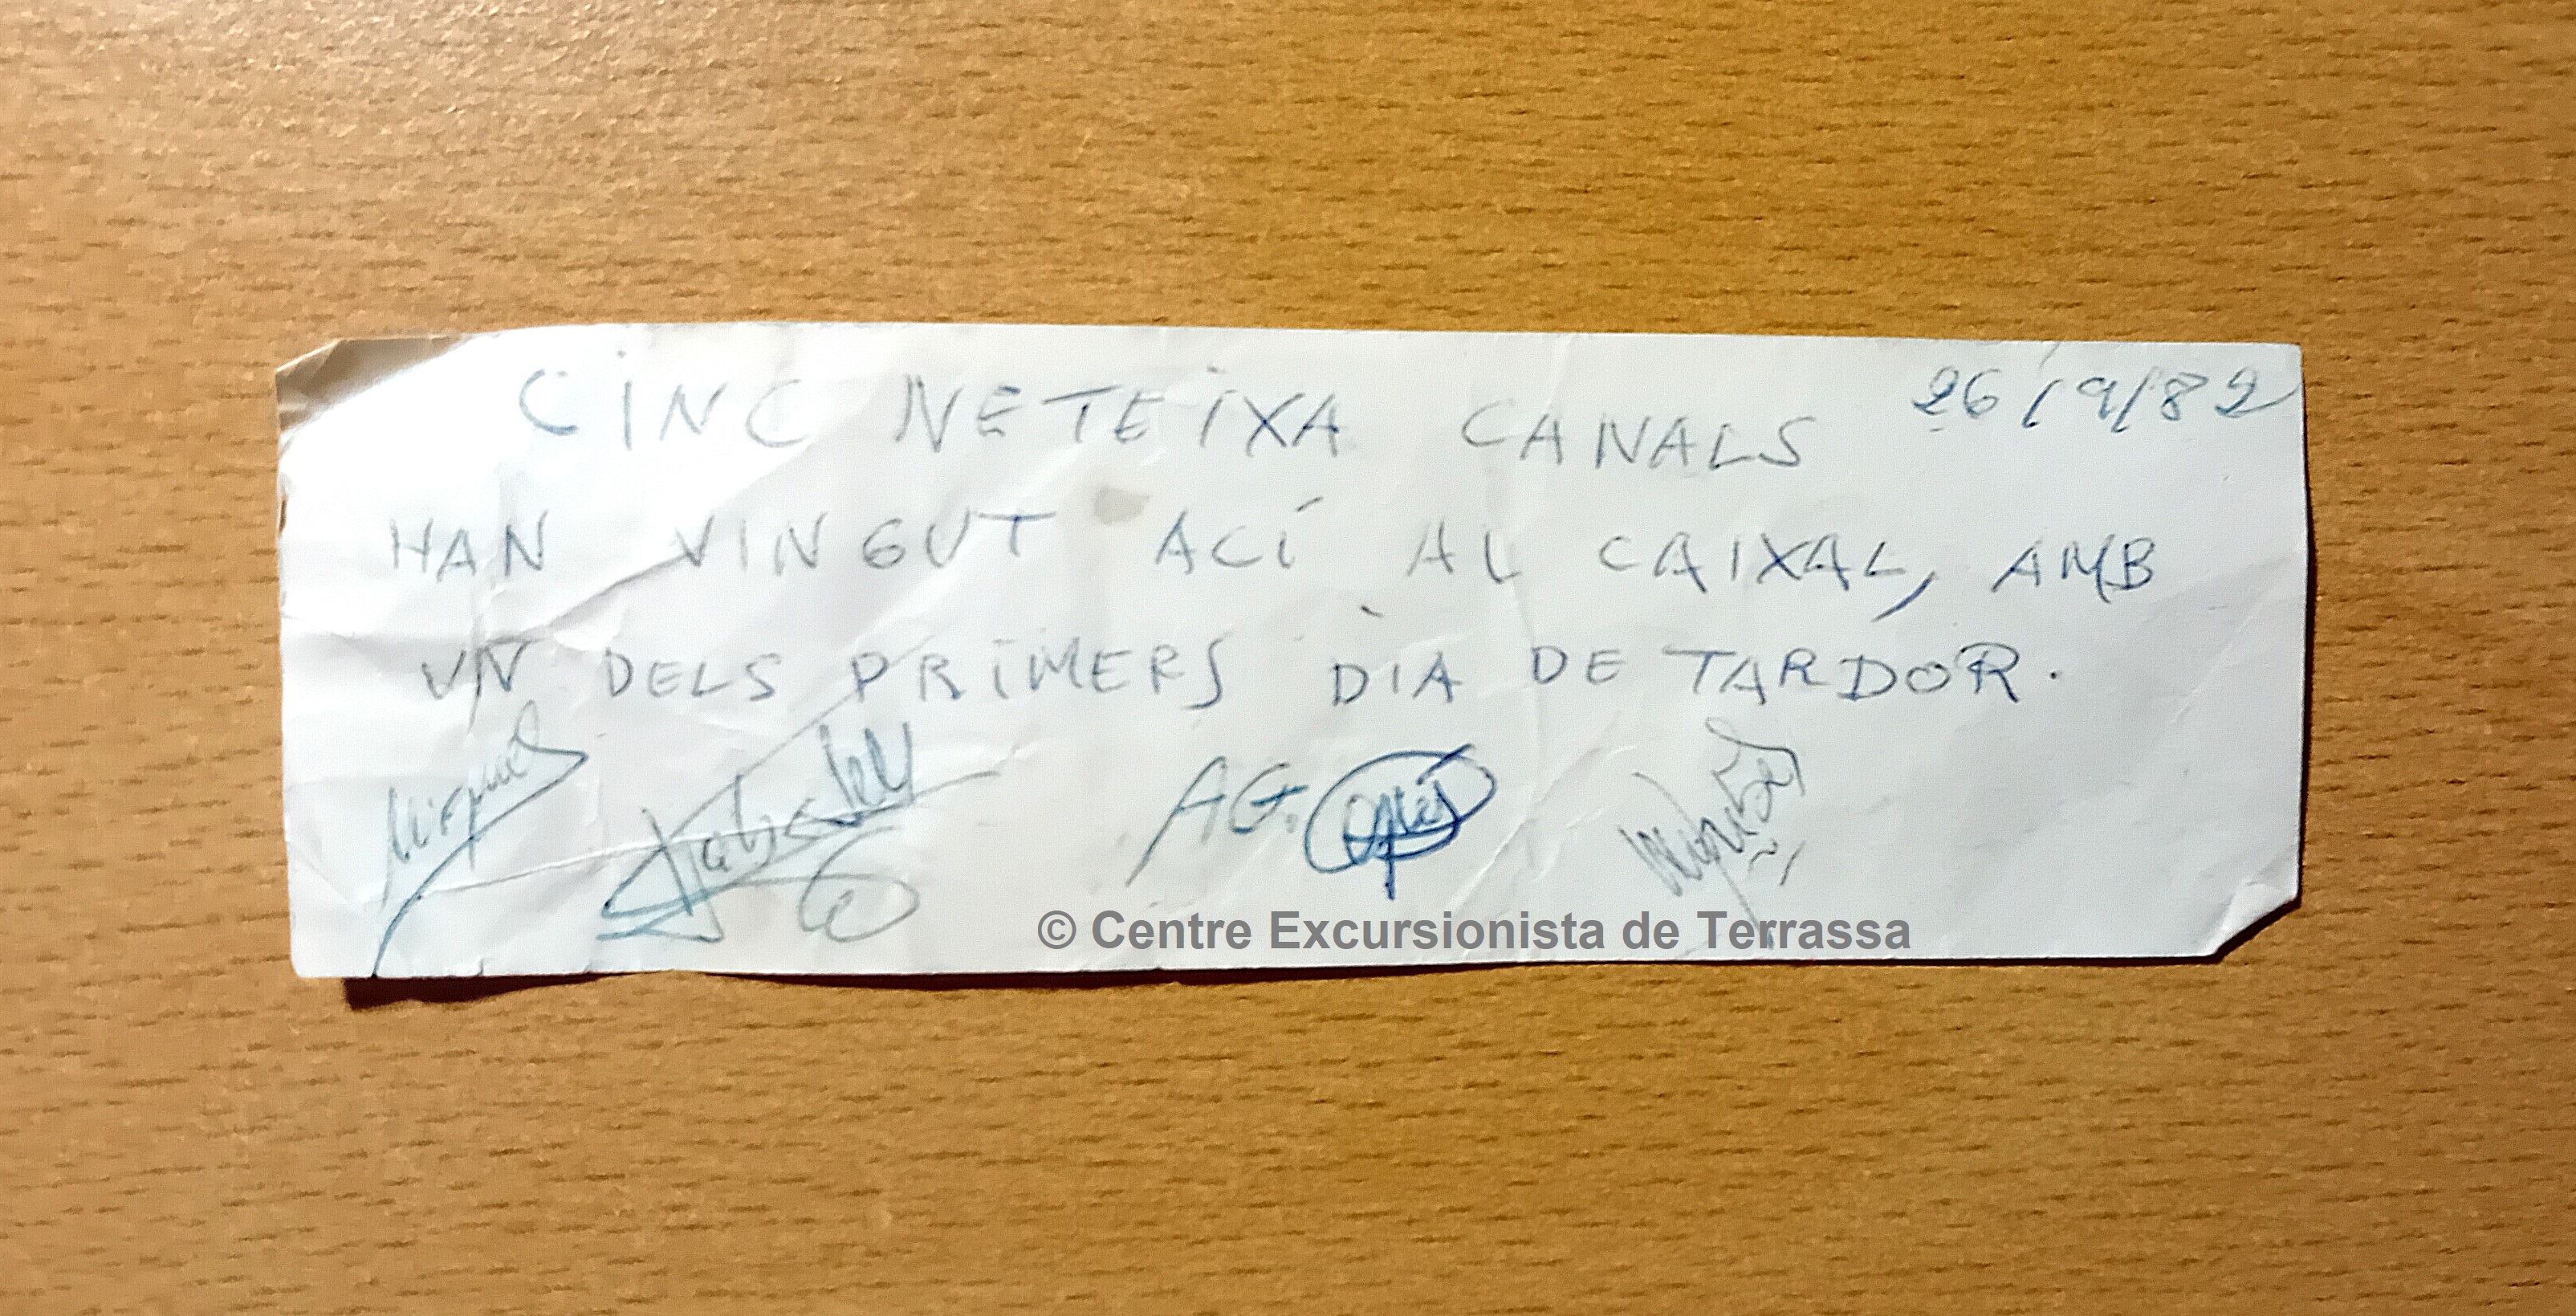 26/9/82
CINC NETEIXA CANALS
HAN VINGUT ACÍ AL CAIXAL, AMB
UN DELS PRIMERS DÌA DE TARDOR.
Miquel
AG.
© Centre Excursionista de Terrassa